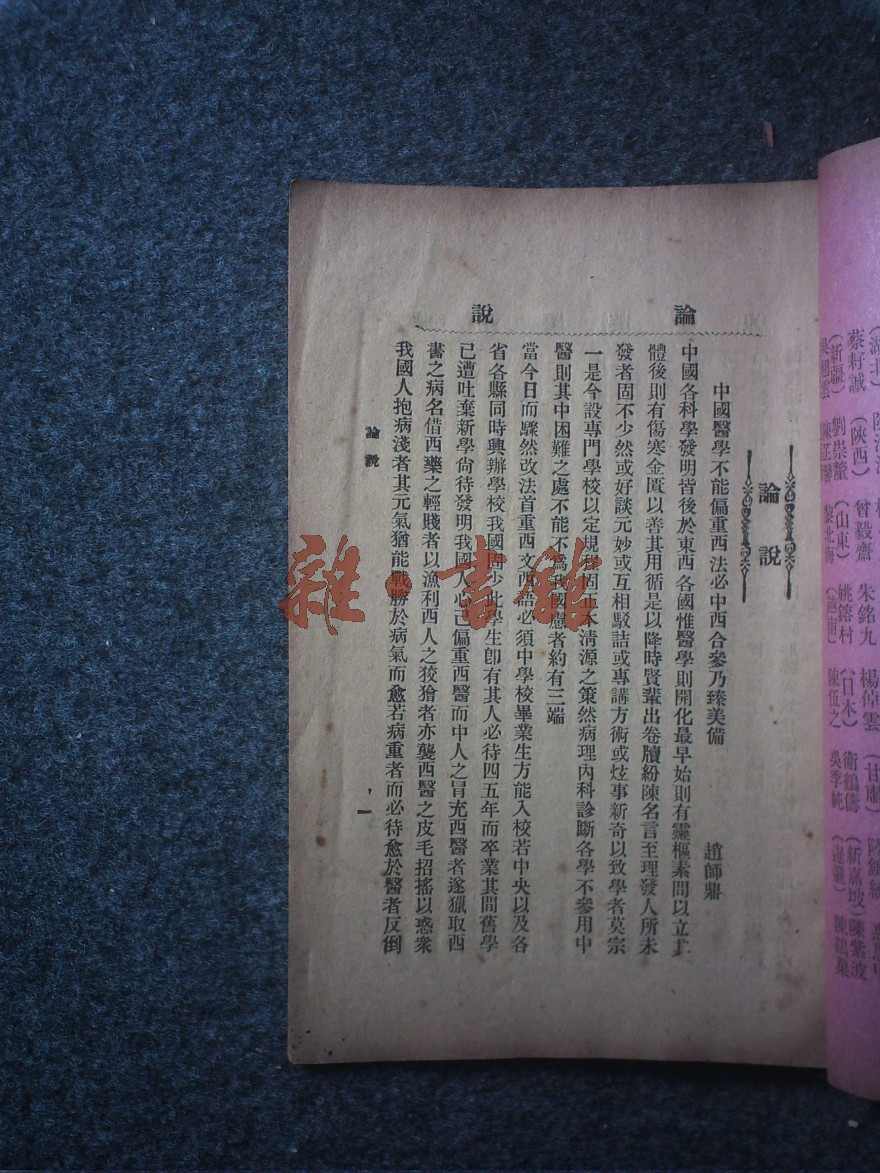 論說
論說
中國醫學不能偏重西法必中西合參乃臻美備　趙師鼎
中國各科學發明皆後於東西各國惟醫學則開化最早始則有靈樞素問以立
體後則有傷寒金匱以善其用循是以降時賢輩出卷牘紛陳名言至理發人所未
發者固不少然或好談元妙或互相駁詰或專講方術或炫事新奇以致學者莫宗
一是今設專門學校以定規程固正本清源之策然病理內科診斷各學不參用中
醫則其中困難之處不能不為我國慮者約有三端
當今日而驟然改法首重西文西語必須中學校畢業生方能入校若中央以及各
省各縣同時興辦學校我國固少此學生卽有其人必待四五年而卒業其間舊學
已遭吐棄新學尙待發明我國人心已偏重西醫而中人之冒充西醫者遂獵取西
書之病名借西藥之輕賤者以漁利西人之狡獪者亦襲西醫之皮毛招搖以惑衆
我國人抱病淺者其元氣猶能戰勝於病氣而愈若病重者而必待愈於醫者反倒
論說
一
雜·書館
蔡籽誠
(陝西)
曾毅齋
朱銘九
楊倬雲
(甘肅)
(新疆)
劉崇釐
(山東)
姚鎔村
(日本)
衞鶴儔
(新嘉坡)
陳紫波
黎北海
(越南)
陳伍之
吳季純
陳鶴巢